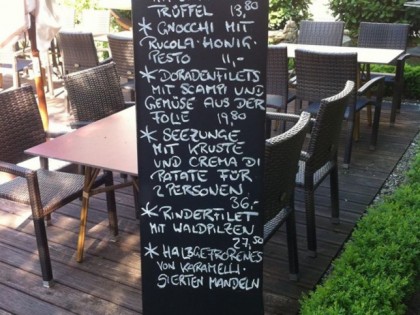 TRÜFFEL 13,80
* GNOCCHI MIT
RUCOLA-HONIG-
PESTO 11,-
* DORADENFILETS
MIT SCAMPI UND
GEMÜSE AUS DER
FOLIE 19,80
* SEEZUNGE
MIT KRUSTE
UND CREMA DI
PATATE FÜR
2 PERSONEN
36,-
* RINDERFILET
MIT WALDPILZEN
27,50
* HALBGEFRORENES
VON KARAMELLI-
SIERTEN MANDELN